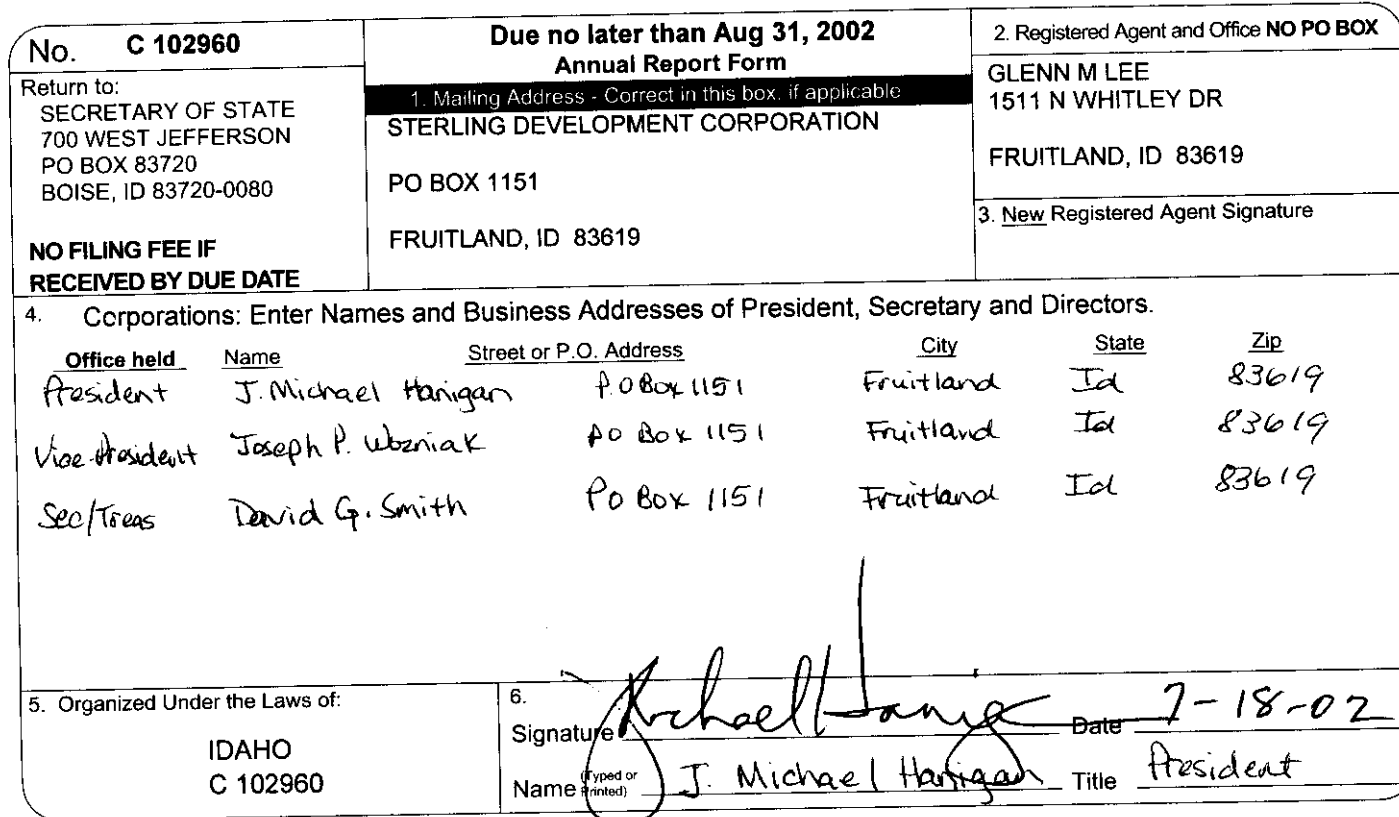 No. C 102960
Return to:
SECRETARY OF STATE
700 WEST JEFFERSON
PO BOX 83720
BOISE, ID 83720-0080
NO FILING FEE IF
RECEIVED BY DUE DATE
Due no later than Aug 31, 2002
Annual Report Form
1. Mailing Address - Correct in this box, if applicable
STERLING DEVELOPMENT CORPORATION
PO BOX 1151
FRUITLAND, ID 83619
2. Registered Agent and Office NO PO BOX
GLENN M LEE
1511 N WHITLEY DR
FRUITLAND, ID 83619
3. New Registered Agent Signature
4. Corporations: Enter Names and Business Addresses of President, Secretary and Directors.
Office held Name Street or P.O. Address City State Zip
President J. Michael Hanigan P.O Box 1151 Fruitland Id 83619
Vice-President Joseph P. Wozniak PO Box 1151 Fruitland Id 83619
Sec/Treas David G. Smith PO Box 1151 Fruitland Id 83619
5. Organized Under the Laws of:
IDAHO
C 102960
6.
Signature Michael Hanigan Date 7-18-02
Name (Typed or Printed) J. Michael Hanigan Title President